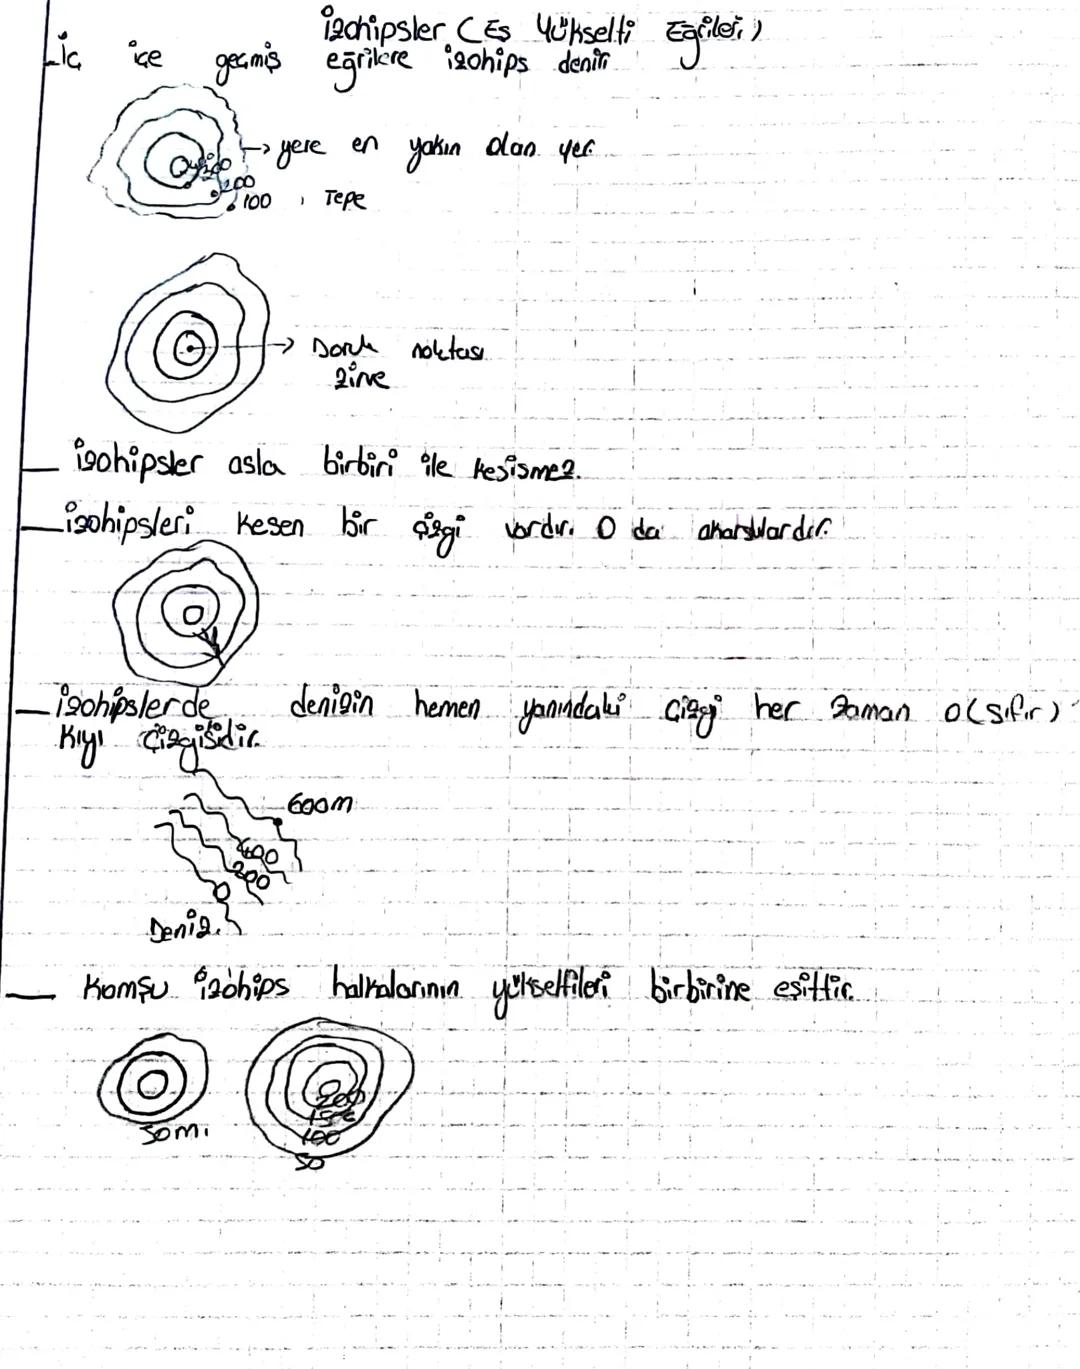 İzohipsler (Eş Yükselti Eğrileri)
-İç içe geçmiş eğrilere izohips denir
→ yere en yakın olan yer.
300
200
100, Tepe
→ Doruk noktası
zirve
— izohipsler asla birbiri ile kesişmez.
— izohipsleri kesen bir çizgi vardır. O da akarsulardır.
— izohipslerde denizin hemen yanındaki çizgi her zaman 0 (sıfır)
Kıyı çizgisidir.
600m
400
200
Deniz.
— Komşu izohips halkalarının yükseltileri birbirine eşittir.
200
150
50m. 100
50